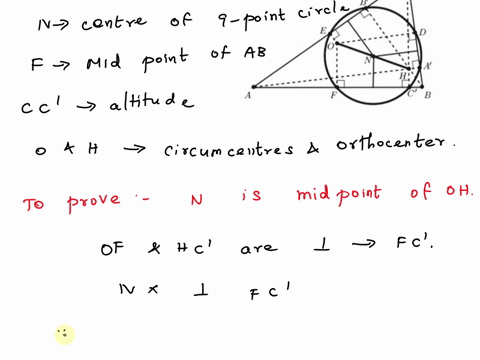 N → centre of 9-point circle
F → Mid point of AB
CC' → altitude
O & H → circumcentres & orthocenter.
To prove :- N is midpoint of OH.
OF & HC' are ⊥ → FC'.
N x ⊥ FC'
∴
B'
E
D
O
N
H
A'
A
F
C'
B